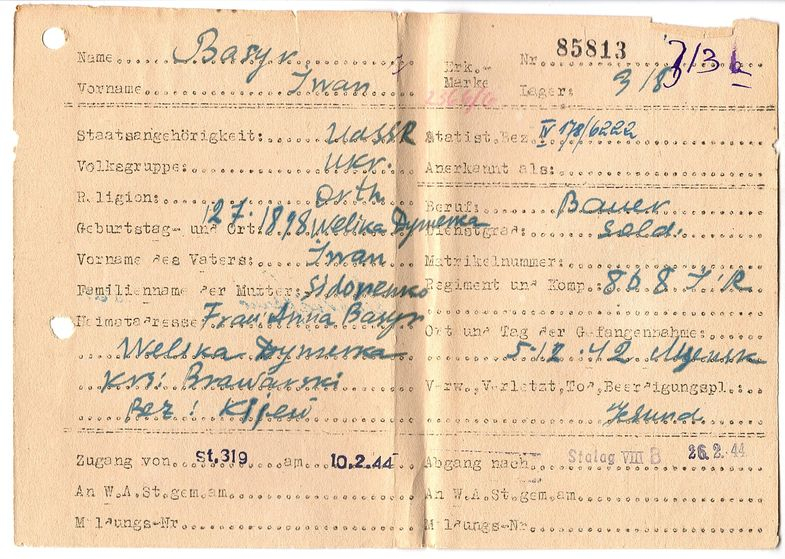 Name Basyk
Vorname Iwan
Erk.-
Marke
Nr 85813
Lager: 3/8
Staatsangehörigkeit: UdSSR
Volksgruppe: Ukr.
Religion: Orth
Geburtstag- und Ort: 12.7.1898 Welika Dymerka
Vorname des Vaters: Iwan
Familienname der Mutter: Sidorenko
Heimatadresse: Frau Anna Basyk
Welika Dymerka
Krs: Browarski
Bez: Kijew
Statist.Bez. IV 178/6222
Anerkannt als:
Beruf: Bauer
Dienstgrad: Sold.
Matrikelnummer:
Regiment und Komp.: 868 I.R
Ort und Tag der Gefangennahme:
5.12.42
Verw., Verletzt, Tod, Beerdigungspl.:
Gesund
Zugang von St.319 am 10.2.44
An W.A.St.gem.am
Meldungs-Nr
Abgang nach Stalag VIII B 26.2.44
An W.A.St.gem.am
Meldungs-Nr